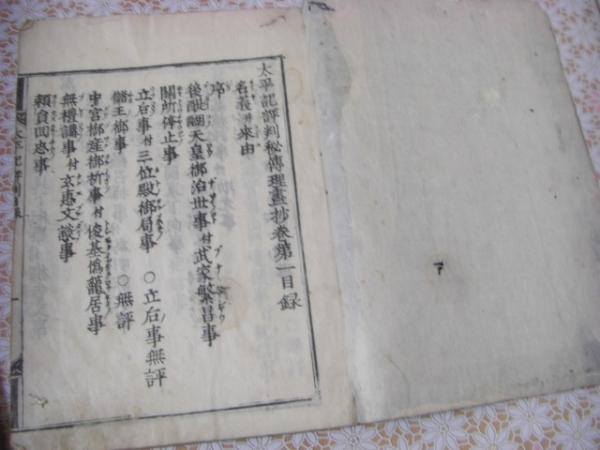 太平記評判秘傳理盡抄卷第一目録
名義并來由
序
後醍醐天皇御治世事付武家繁昌事
關所停止事
立后事付三位殿御局事 〇立后事無評
儲王御事 〇無評
中宮御産御祈事付俊基僞籠居事
無禮講事付玄惠文談事
頼員回忠事